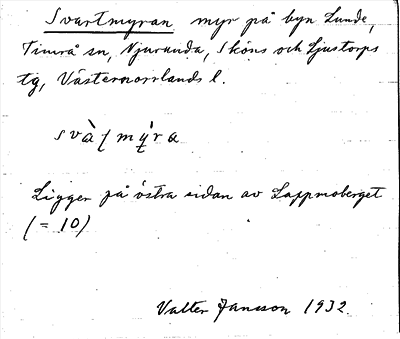 Svartmyran myr på byn Lunde,
Timrå sn, Njurunda, Sköns och Ljustorps
tg, Västernorrlands l.
Ligger på östra sidan av Lappmoberget
(= 10)
Valter Jansson 1932.